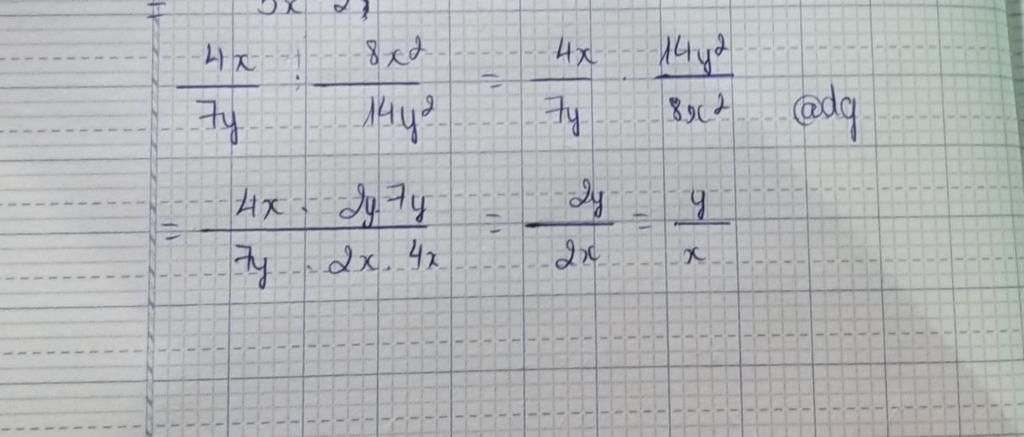 = 3x 2y
4x/7y : 8x²/14y² = 4x/7y · 14y²/8x² @dg
= 4x · 2y 7y/7y · 2x · 4x = 2y/2x = y/x